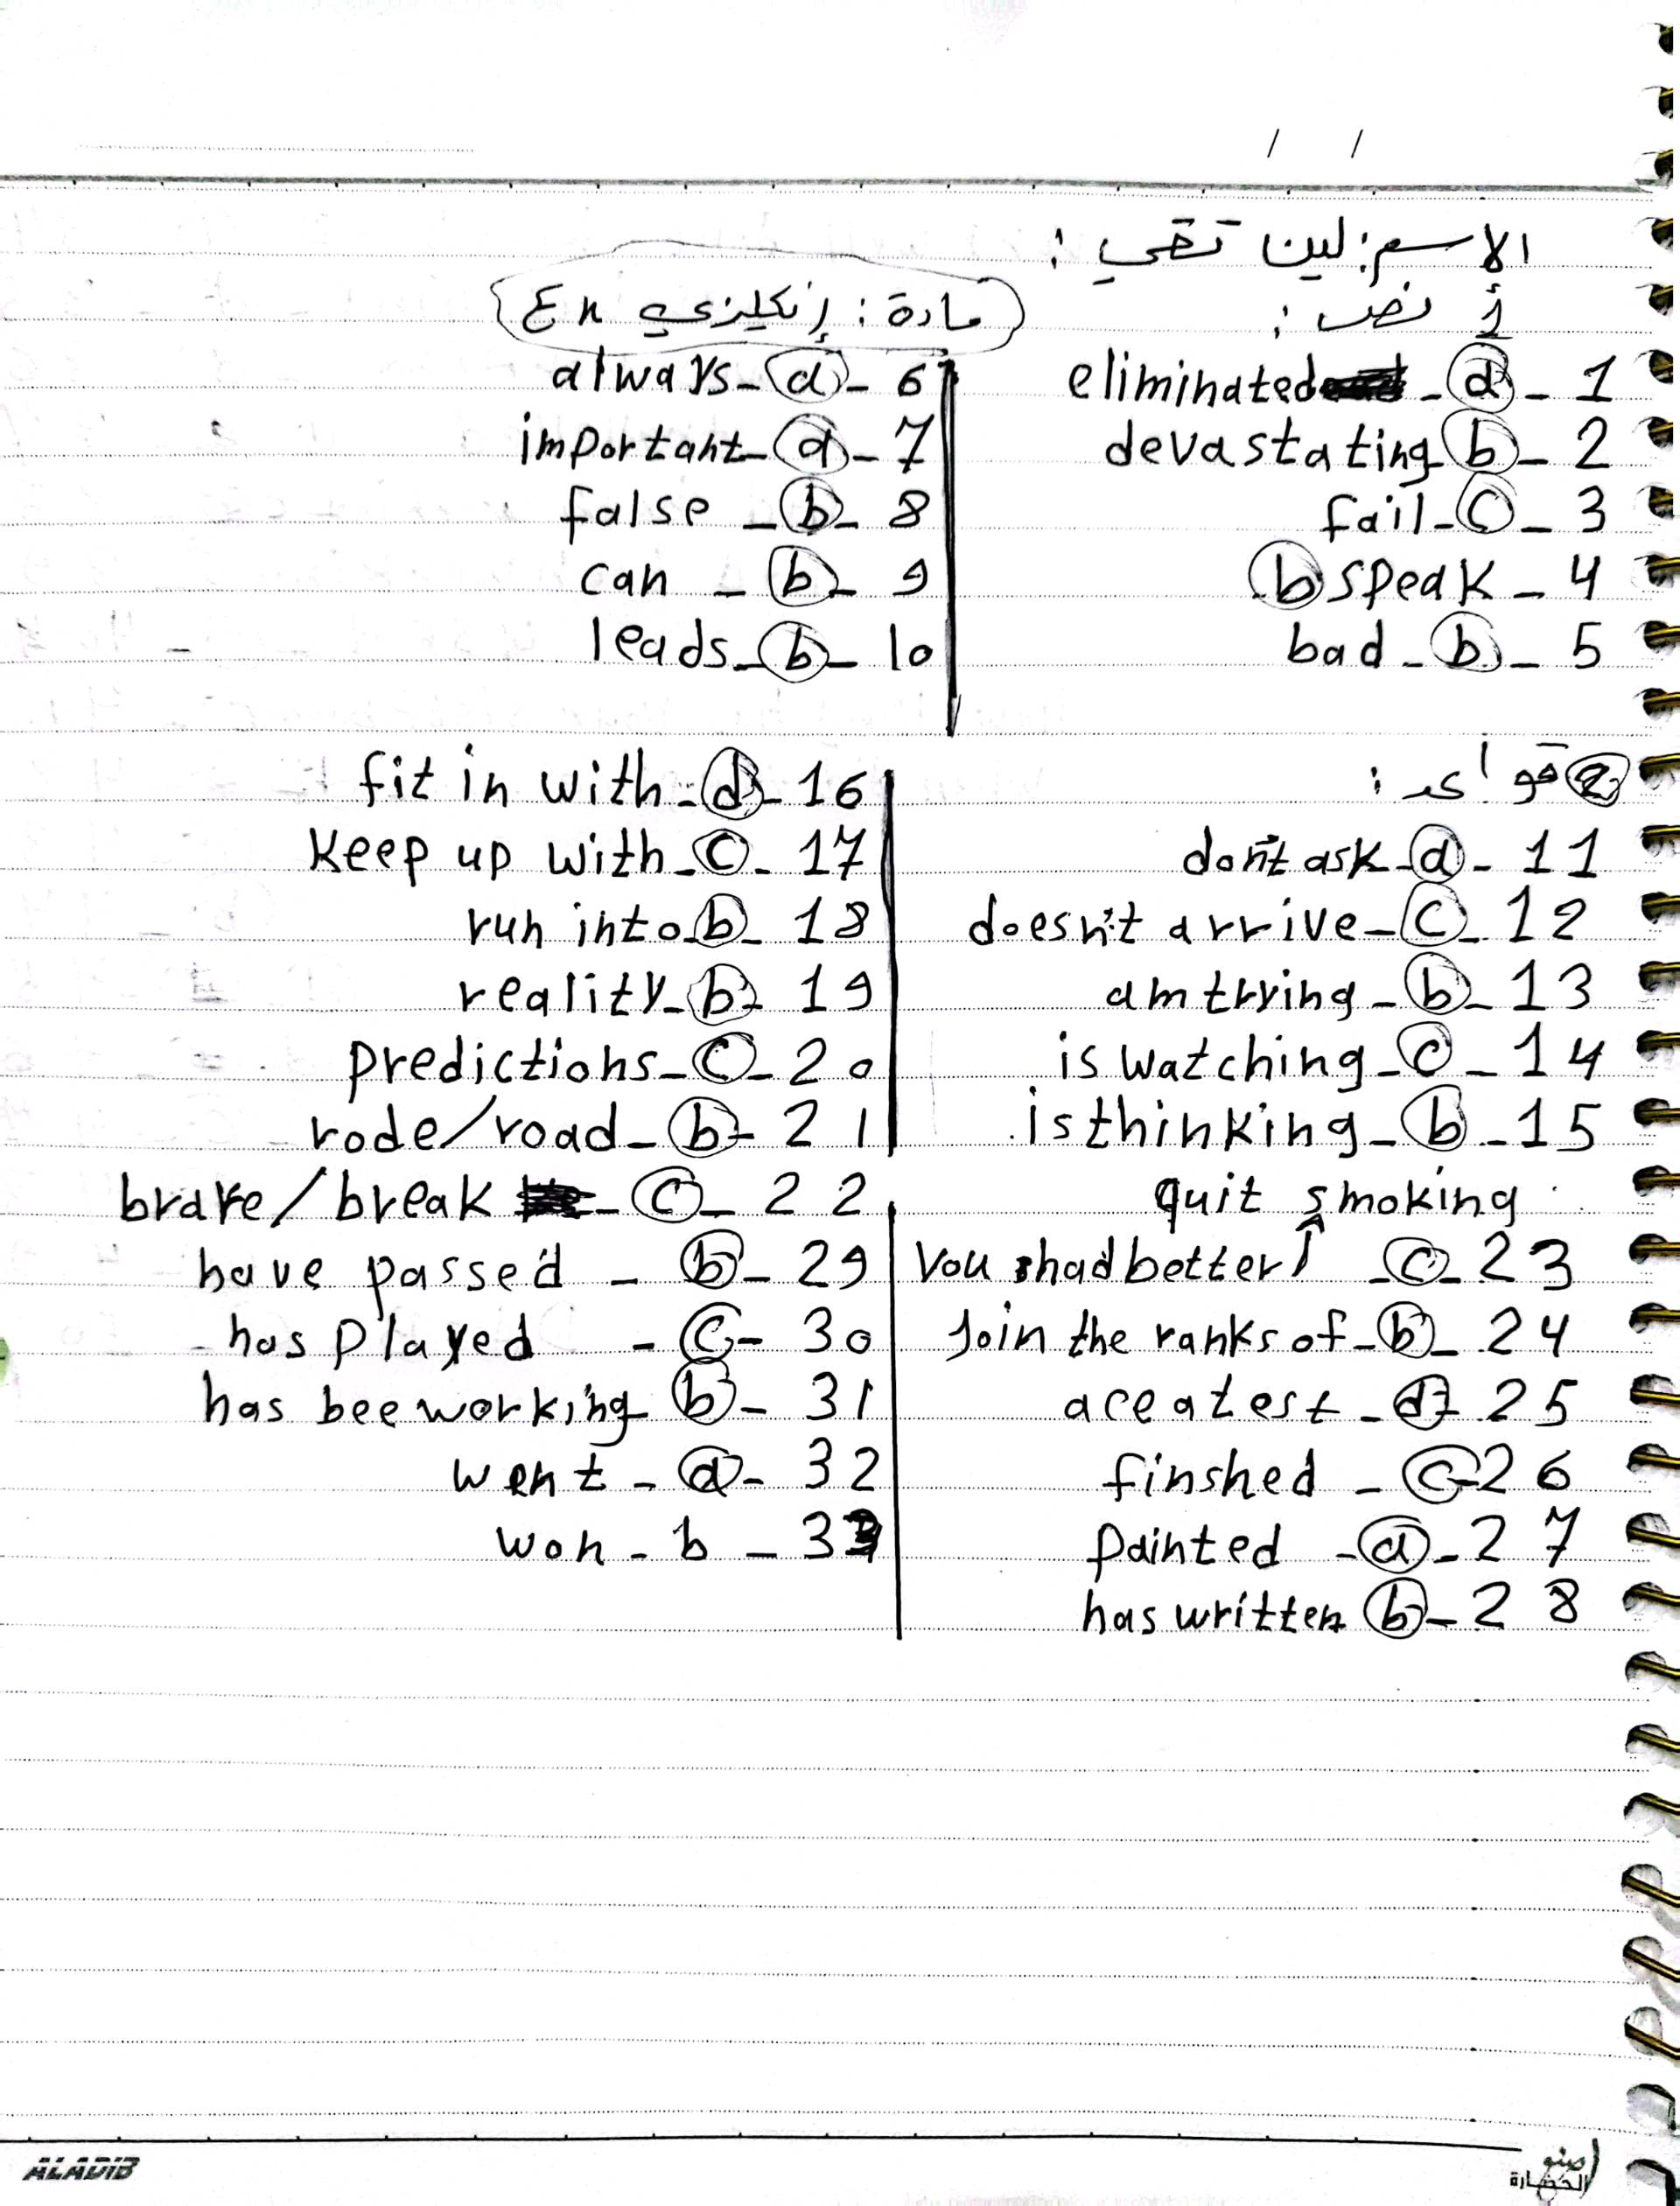 / /
الاسم: لين تقي :
مادة : إنكليزي En
1 نص :
eliminated - d - 1
devastating b - 2
fail - C - 3
b speak - 4
bad - b - 5
always - a - 6
important - a - 7
false - b - 8
can - b - 9
leads - b - 10
2 قواعد :
don't ask - a - 11
doesn't arrive - C - 12
am trying - b - 13
is watching - C - 14
is thinking - b - 15
fit in with - d - 16
Keep up with - C - 17
run into - b - 18
reality - b - 19
predictions - C - 20
rode/road - b - 21
brake/break - C - 22
quit smoking
You had better - C - 23
Join the ranks of - b - 24
ace a test - d - 25
finshed - C - 26
painted - a - 27
has written b - 28
have passed - b - 29
has played - C - 30
has bee working b - 31
went - a - 32
won - b - 33
ALADIB
الحضارة